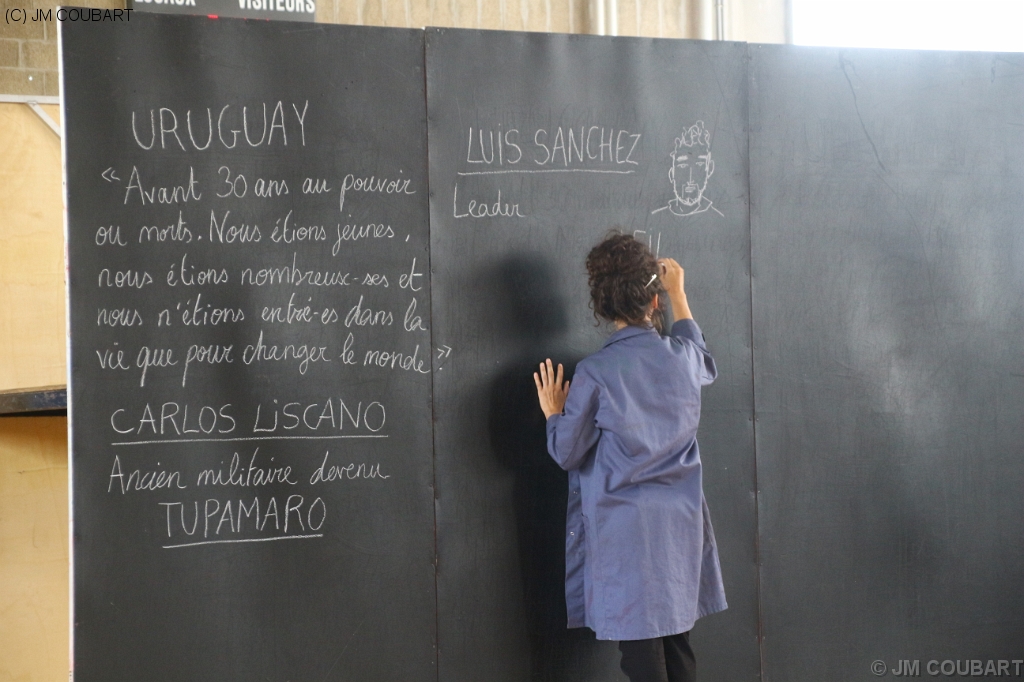 (C) JM COUBART
LOCAUX VISITEURS
URUGUAY
« Avant 30 ans au pouvoir
ou morts. Nous étions jeunes,
nous étions nombreux-ses et
nous n'étions entré-es dans la
vie que pour changer le monde »
CARLOS LISCANO
Ancien militaire devenu
TUPAMARO
LUIS SANCHEZ
Leader
© JM COUBART